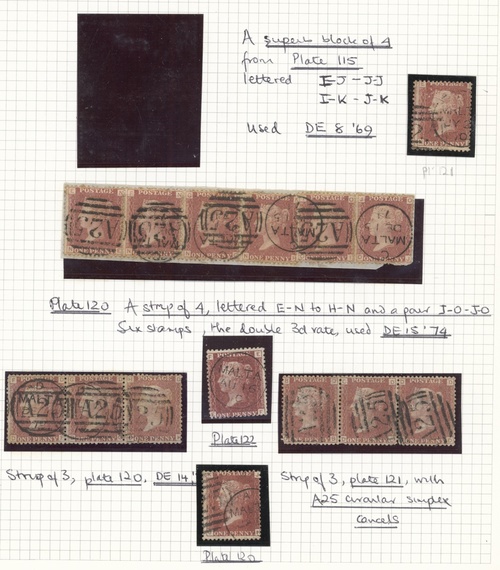 A superb block of 4
from Plate 115
lettered I-J - J-J
I-K - J-K
Used DE 8 '69
Pl. 121
POSTAGE POSTAGE POSTAGE POSTAGE POSTAGE POSTAGE
A25 A25 A25 MALTA A25 MALTA
ONE PENNY ONE PENNY ONE PENNY ONE PENNY ONE PENNY ONE PENNY
Plate 120 A strip of 4, lettered E-N to H-N and a pair I-O-J-O
Six stamps, the double 3d rate, used DE 15 '74
MALTA A25 A25
MALTA
ONE PENNY
Plate 122
Strip of 3, plate 120. DE 14'
Strip of 3, plate 121, with
A25 circular simplex
cancels
ONE PENNY
Plate 120